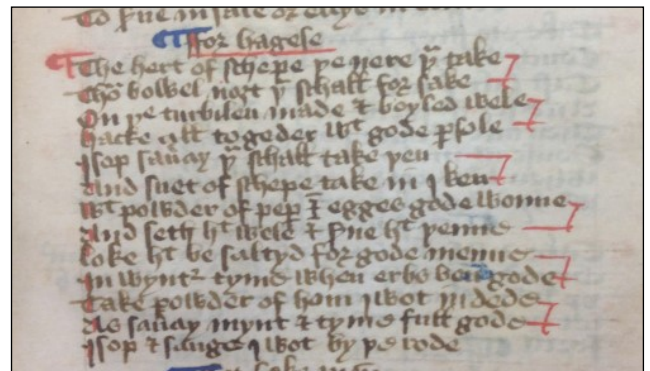 To sue in sale or ellys in
For hagese
The hert of schepe þe nere þu take
Tho bowel noȝt þu schall for sake
On þe turbilen made & boyled wele
Hacke all togeder wt gode psole
Isop sauay þu schall take þen
And suet of schepe take in I ken
Wt powder of pep & egges gode wonne
And seth ht wele & sue ht þenne
Loke ht be saltyd for gode menne
In wyntr tyme when erbs ben gode
Take powder of hom I wot in dede
As sauay mynt & tyme full gode
Isop & sauge I wot by þe rode